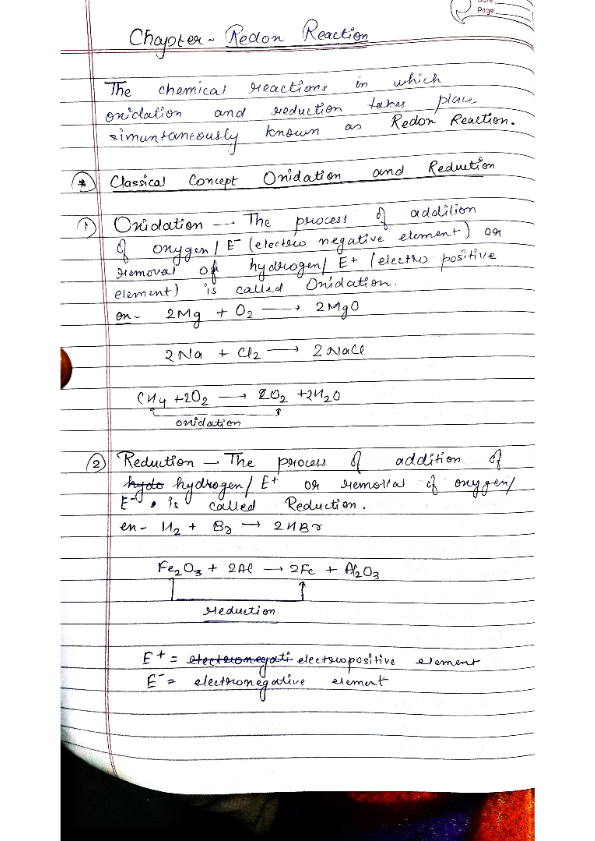 Page
Chapter - Redox Reaction
The chemical reactions in which
oxidation and reduction takes place
simuntaneously known as Redox Reaction.
* Classical Concept Oxidation and Reduction
1) Oxidation — The process of addition
of oxygen/E⁻ (electro negative element) or
removal of hydrogen/E+ (electro positive
element) is called Oxidation.
ex- 2Mg + O₂ ⟶ 2MgO
2Na + Cl₂ ⟶ 2NaCl
CH₄ +2O₂ ⟶ CO₂ +2H₂O
oxidation
2) Reduction — The process of addition of
hydo hydrogen/E+ or removal of oxygen/
E⁻ is called Reduction.
ex- H₂ + Br₂ → 2HBr
Fe₂O₃ + 2Al ⟶ 2Fe + Al₂O₃
reduction
E+ = electronegati electropositive element
E⁻ = electronegative element